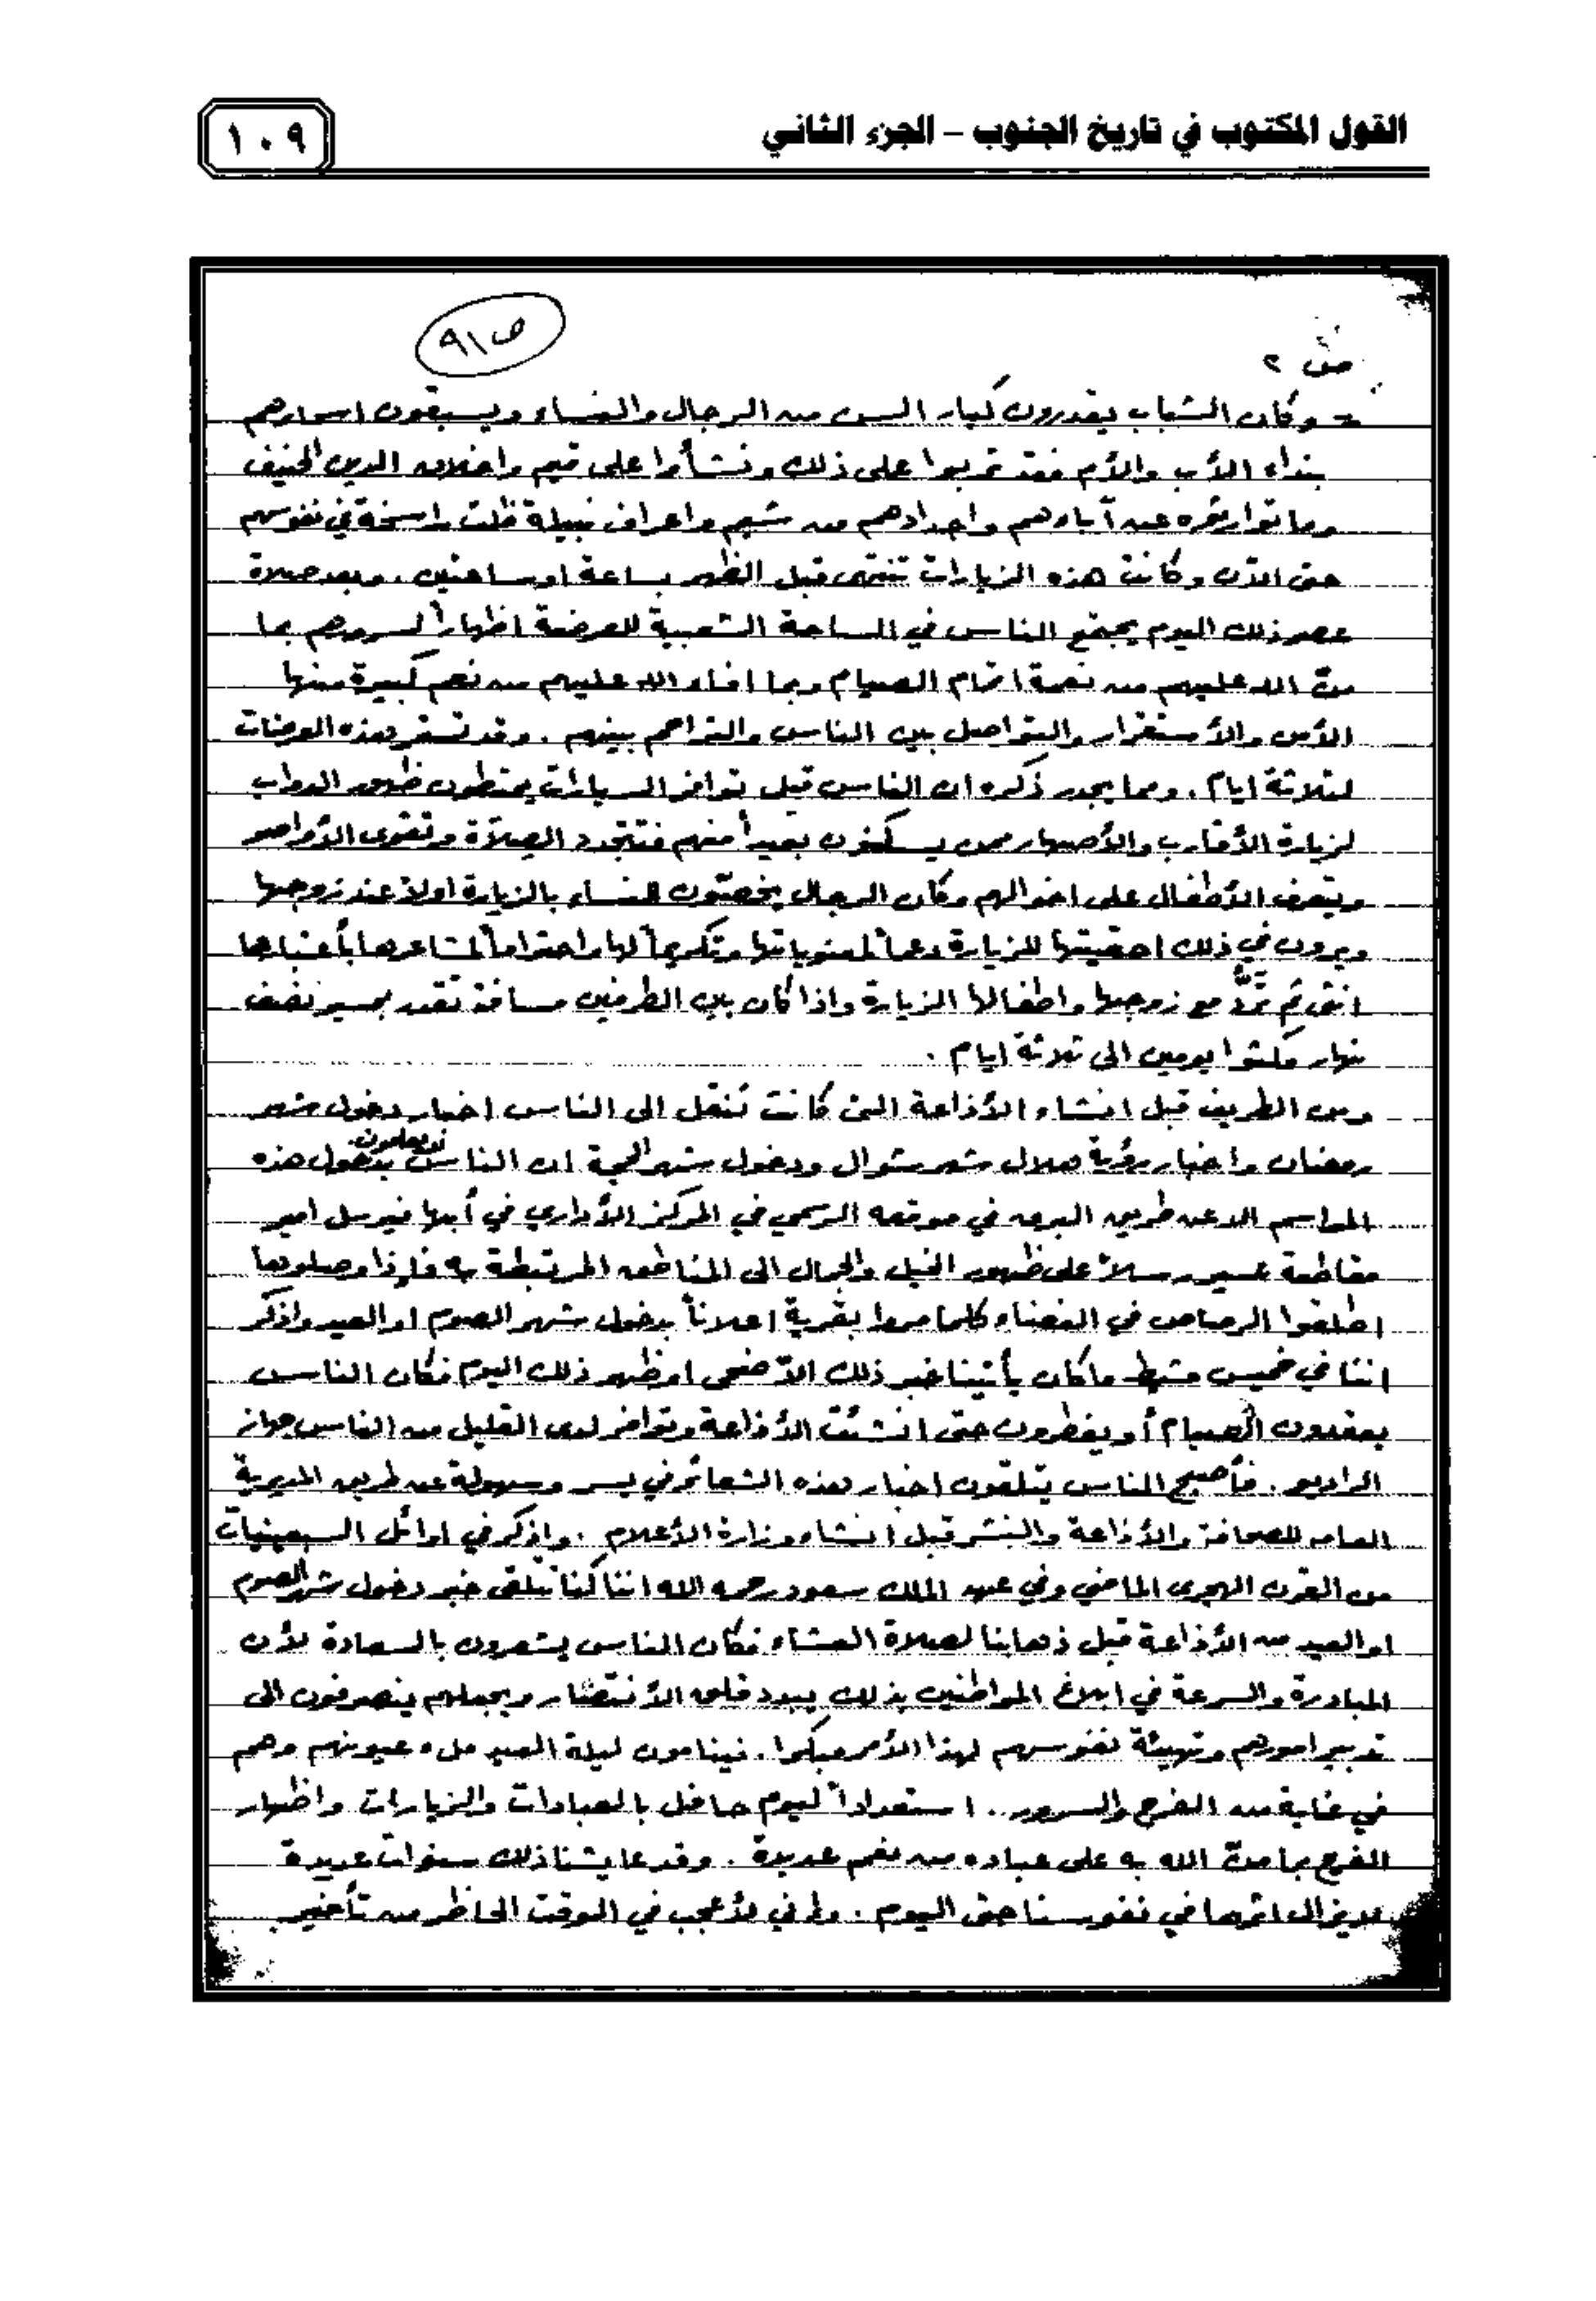 القول المكتوب في تاريخ الجنوب – الجزء الثاني
١٠٩
ص ٩١
ص ٢
= وكان الشباب يقدرون كبار السن من الرجال والنساء ويسبقون اسماءهم
بنداء الأب والأم فقد تربوا على ذلك ونشأوا على قيم واخلاق الدين الحنيف
وما توارثوه عن آباءهم واجدادهم من شيم واعراف نبيلة ظلت راسخة في نفوسهم
حتى الآن وكانت هذه الزيارات تنتهي قبل الظهر بساعة او ساعتين . وبعد صلاة
عصر ذلك اليوم يجتمع الناس في الساحة الشعبية للعرضة اظهاراً لسرورهم بما
منّ الله عليهم من نعمة اتمام الصيام وبما افاء الله عليهم من نعم كبيرة منها
الأمن والأستقرار والتواصل بين الناس والتراحم بينهم . وقد تستمر هذه العرضات
لثلاثة ايام . ومما يجدر ذكره ان الناس قبل توافر السيارات يمتطون ظهور الدواب
لزيارة الأقارب والأصهار ممن يسكنون بعيداً منهم فتتجدد الصلاة وتقوى الأواصر
ويتعرف الأطفال على اخوالهم وكان الرجال يخصّون النساء بالزيارة اولاً عند زوجها
ويرون في ذلك احقيتها للزيارة دعماً لمعنوياتها وتكريماً لها واحتراماً لمشاعرها بأعتبارها
انثى ثم تردّ مع زوجها واطفالها الزيارة واذا كان بين الطرفين مسافة تقدر بمسير نصف
نهار مكثوا يومين الى ثلاثة ايام .
ومن الطريف قبل انشاء الأذاعة التي كانت تنقل الى الناس اخبار دخول شهر
رمضان واخبار رؤية هلال شهر شوال ودخول شهر الحجة ان الناس لا يعلمون بدخول هذه
المواسم الا عن طريق البرق في موقعه الرسمي في المركز الأداري في أبها فيرسل امير
مقاطعة عسير رسلاً على ظهور الخيل والجمال الى المناطق المرتبطة به فإذا وصلوها
اطلقوا الرصاص في الفضاء كلما مروا بقرية اعلاناً بدخول شهر الصوم او العيد واذكر
اننا في خميس مشيط ما كان يأتينا خبر ذلك الا ضحى او ظهر ذلك اليوم فكان الناس
يعقدون الصيام أو يفطرون حتى انشئت الأذاعة وتوافر لدى القليل من الناس جهاز
الراديو . فأصبح الناس يتلقون اخبار هذه الشعائر في يسر وسهولة عن طريق المديرية
العامه للصحافة والأذاعة والنشر قبل انشاء وزارة الأعلام . واذكر في اوائل السبعينيات
من القرن الهجري الماضي وفي عهد الملك سعود رحمه الله اننا كنا نتلقى خبر دخول شهر الصوم
او العيد من الأذاعة قبل ذهابنا لصلاة العشاء فكان الناس يشعرون بالسعادة لأن
المبادرة والسرعة في ابلاغ المواطنين بذلك يبدد قلق الأنتظار ويجعلهم ينصرفون الى
تدبير امورهم وتهيئة نفوسهم لهذا الأمر مبكرا . فينامون ليلة العيد ملء عيونهم وهم
في غاية من الفرح والسرور .. استعداداً ليوم حافل بالعبادات والزيارات واظهار
الفرح بما منّ الله به على عباده من نعم عديدة . وقد عايشنا ذلك سنوات عديدة
لايزال اثرها في نفوسنا حتى اليوم . وإني لأعجب في الوقت الحاظر من تأخير